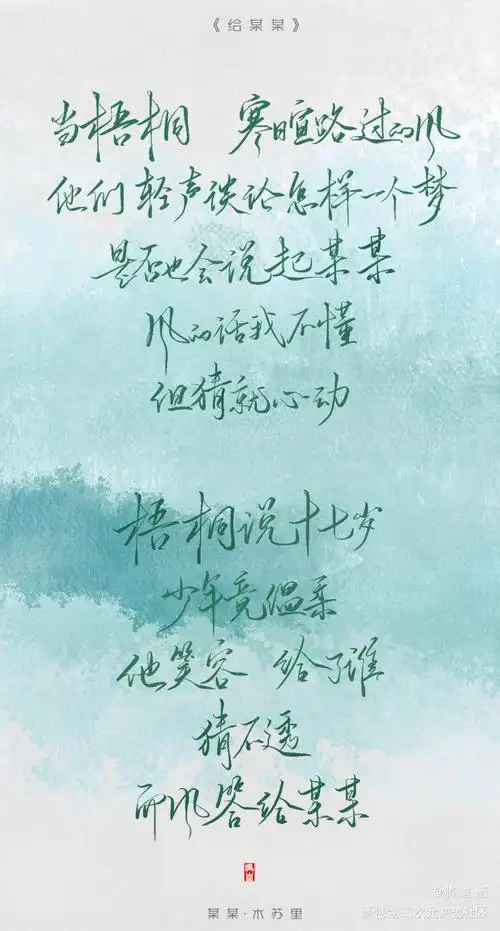 《给某某》
当梧桐 寒暄路过的风
他们轻声谈论怎样一个梦
是否也会说起某某
风的话我不懂
但猜就心动
梧桐说十七岁
少年竟温柔
他笑容 给了谁
猜不透
而风答给某某
某某·木苏里